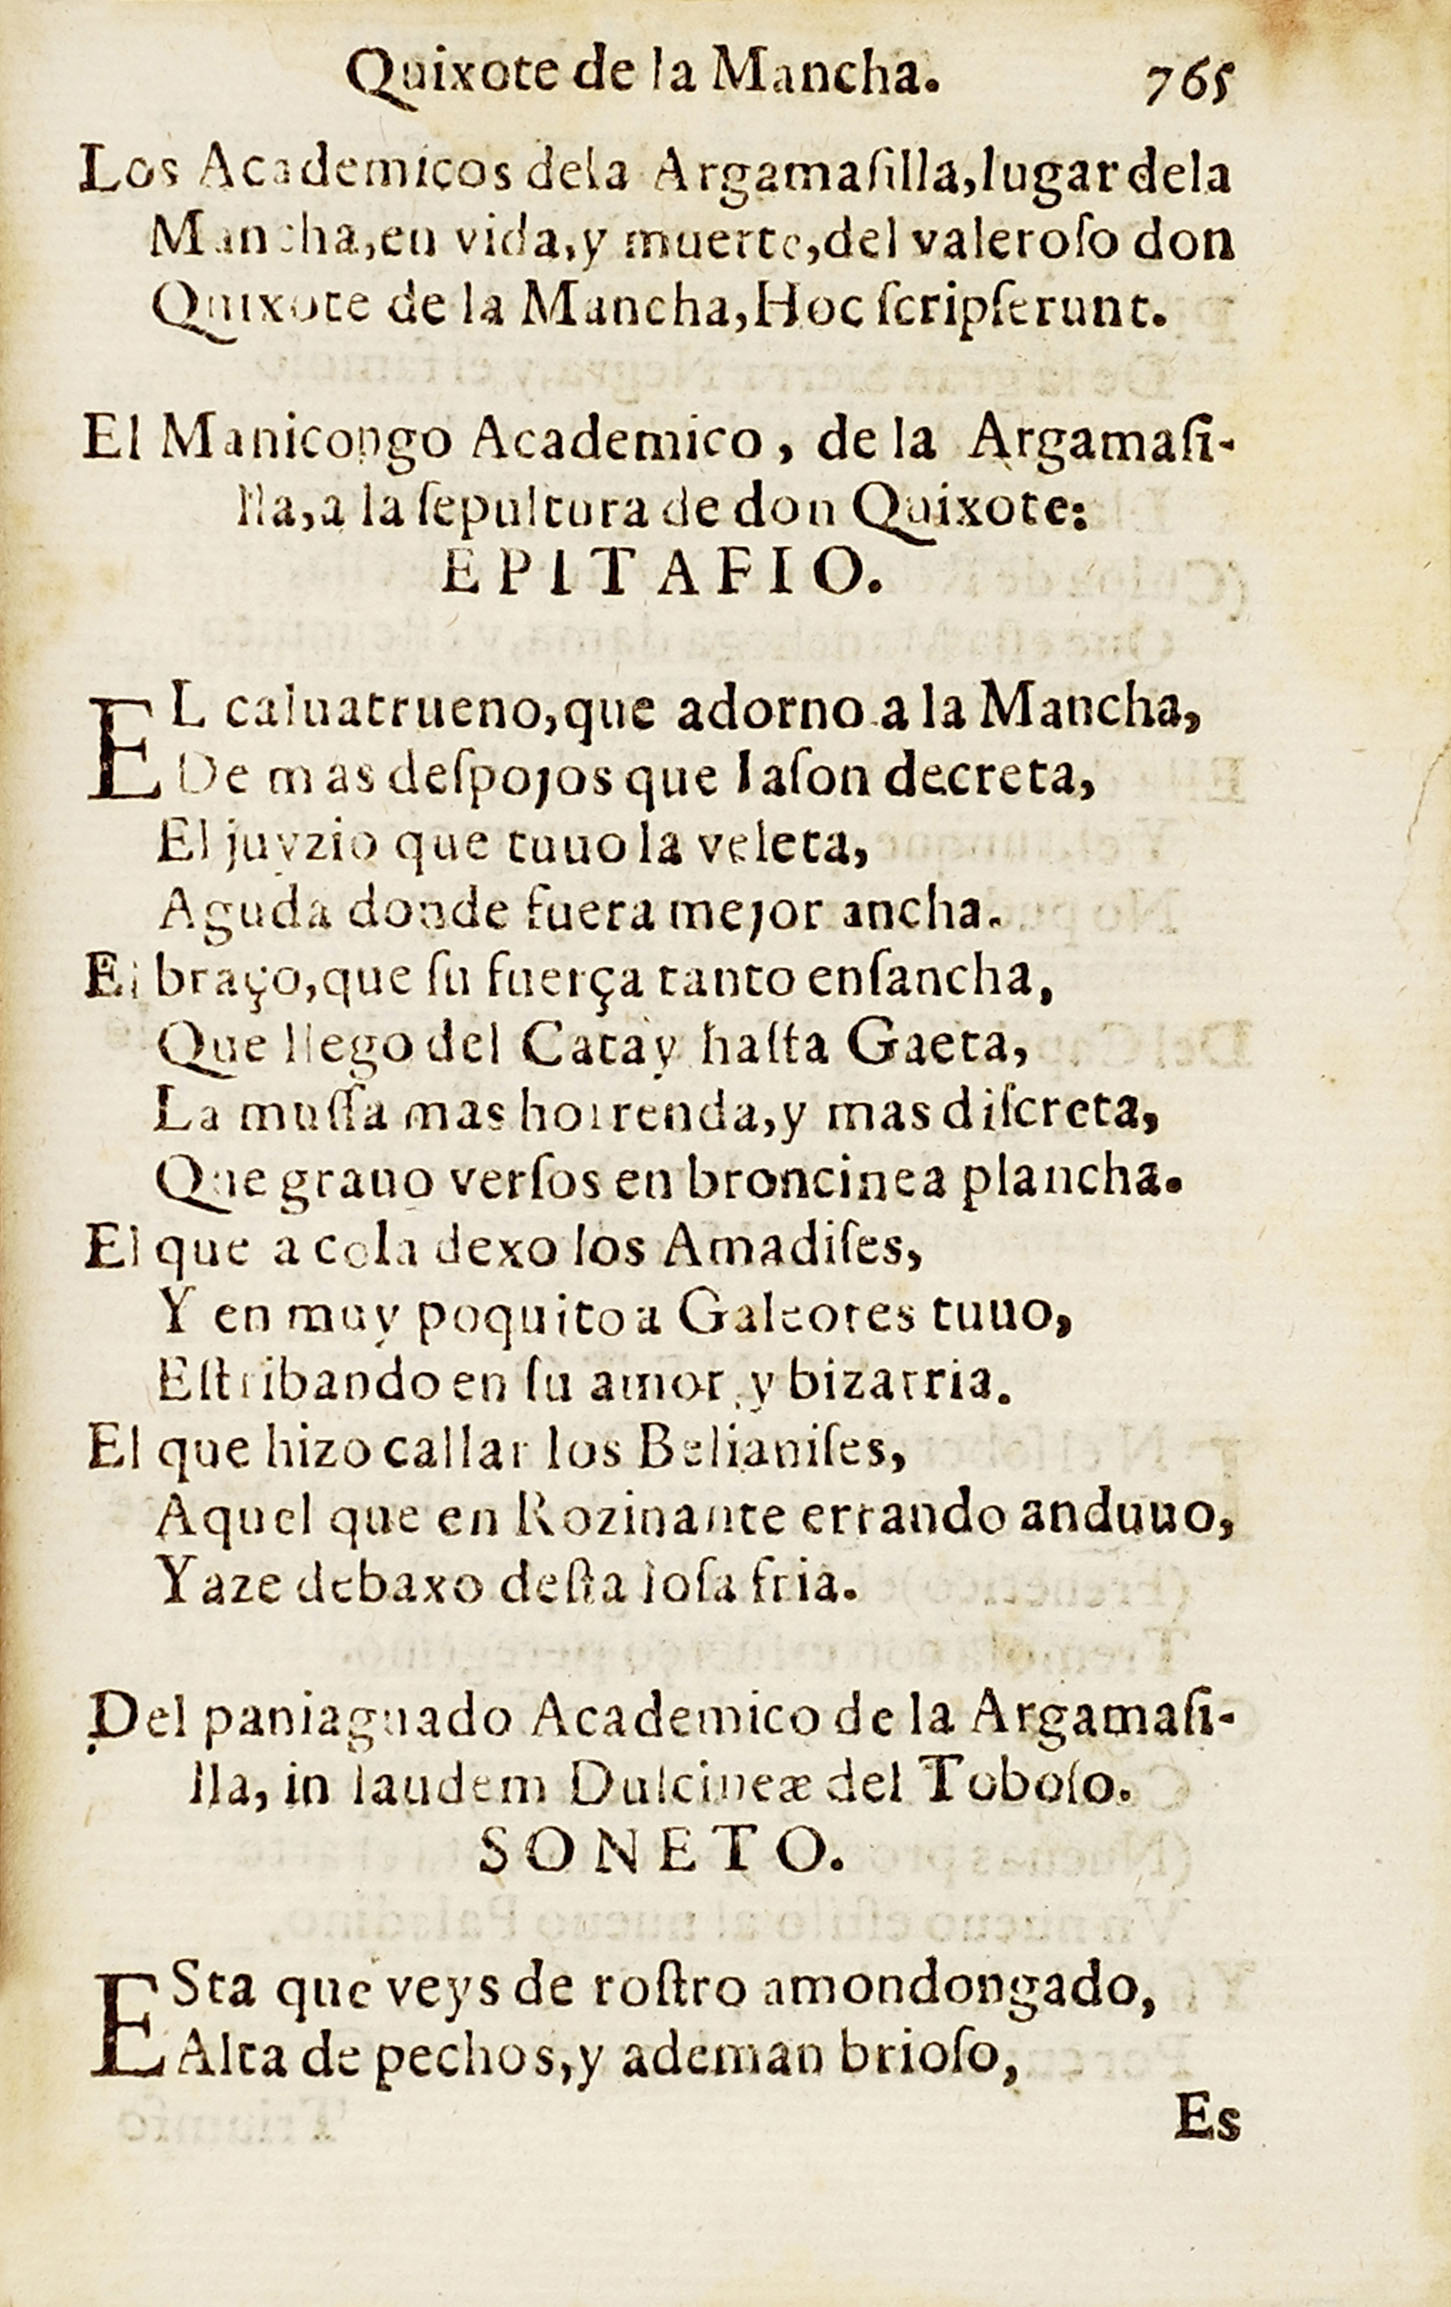 Quixote de la Mancha. 765
Los Academicos dela Argamaſilla,lugar dela
Mancha,en vida,y muerte,del valeroſo don
Quixote de la Mancha,Hoc ſcripſerunt.
El Manicongo Academico, de la Argamaſi-
lla,a la ſepultura de don Quixote:
EPITAFIO.
EL caluatrueno,que adorno a la Mancha,
De mas deſpojos que Iaſon decreta,
El juyzio que tuuo la veleta,
Aguda donde fuera mejor ancha.
El braço,que ſu fuerça tanto enſancha,
Que llego del Catay haſta Gaeta,
La muſſa mas horrenda,y mas diſcreta,
Que grauo verſos en broncinea plancha.
El que a cola dexo los Amadiſes,
Y en muy poquito a Galeotes tuuo,
Eſtribando en ſu amor, y bizarria.
El que hizo callar los Belianiſes,
Aquel que en Rozinante errando anduuo,
Yaze debaxo deſta loſa fria.
Del paniaguado Academico de la Argamaſi-
lla, in laudem Dulcineæ del Toboſo.
SONETO.
ESta que veys de roſtro amondongado,
Alta de pechos,y ademan brioſo,
Es